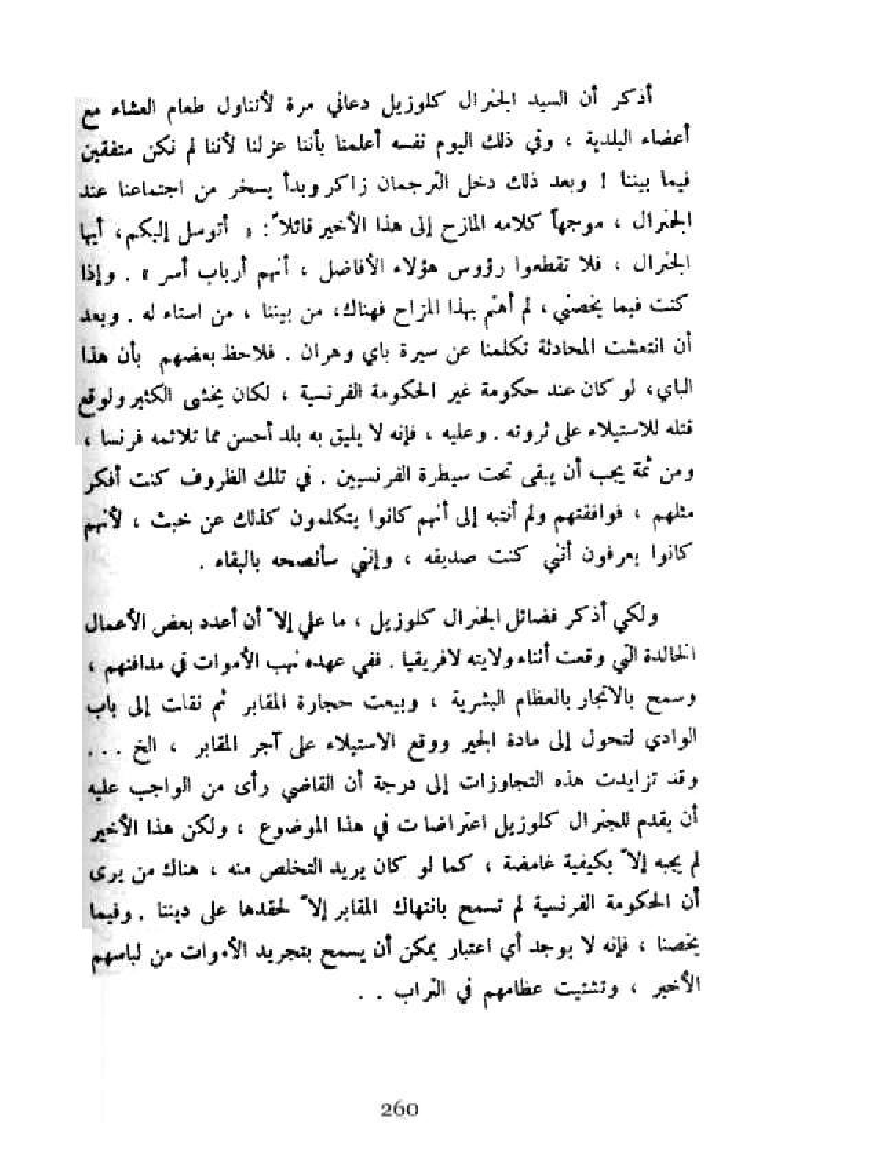 أذكر أن السيد الجنرال كلوزيل دعاني مرة لأتناول طعام العشاء مع
أعضاء البلدية ، وفي ذلك اليوم نفسه أعلمنا بأننا عزلنا لأننا لم نكن متفقين
فيما بيننا ! وبعد ذلك دخل الترجمان زاكر وبدأ يسخر من اجتماعنا عند
الجنرال ، موجهاً كلامه المازح إلى هذا الأخير قائلاً : « أتوسل إليكم، أيها
الجنرال ، فلا تقطعوا رؤوس هؤلاء الأفاضل ، أنهم أرباب أسر » . وإذا
كنت فيما يخصني ، لم أهتم بهذا المزاح فهناك، من بيننا ، من استاء له . وبعد
أن انتعشت المحادثة تكلمنا عن سيرة باي وهران . فلاحظ بعضهم بأن هذا
الباي، لو كان عند حكومة غير الحكومة الفرنسية ، لكان يخشى الكثير ولوقع
قتله للاستيلاء على ثروته . وعليه ، فإنه لا يليق به بلد أحسن مما تلائمه فرنسا ،
ومن ثمة يجب أن يبقى تحت سيطرة الفرنسيين . في تلك الظروف كنت أفكر
مثلهم ، فوافقتهم ولم أنتبه إلى أنهم كانوا يتكلمون كذلك عن خبث ، لأنهم
كانوا يعرفون أنني كنت صديقه ، وإنني سأنصحه بالبقاء .
ولكي أذكر فضائل الجنرال كلوزيل ، ما علي إلاّ أن أعدد بعض الأعمال
الخالدة التي وقعت أثناء ولايته لافريقيا . ففي عهده نهب الأموات في مدافنهم ،
وسمح بالاتجار بالعظام البشرية ، وبيعت حجارة المقابر ثم نقلت إلى باب
الوادي لتحول إلى مادة الجير ووقع الاستيلاء على آجر المقابر ، الخ ...
وقد تزايدت هذه التجاوزات إلى درجة أن القاضي رأى من الواجب عليه
أن يقدم للجنرال كلوزيل اعتراضات في هذا الموضوع ، ولكن هذا الأخير
لم يجبه إلاّ بكيفية غامضة ، كما لو كان يريد التخلص منه ، هناك من يرى
أن الحكومة الفرنسية لم تسمح بانتهاك المقابر إلاّ لحقدها على ديننا . وفيما
يخصنا ، فإنه لا يوجد أي اعتبار يمكن أن يسمح بتجريد الأموات من لباسهم
الأخير ، وتشتيت عظامهم في التراب . .
260